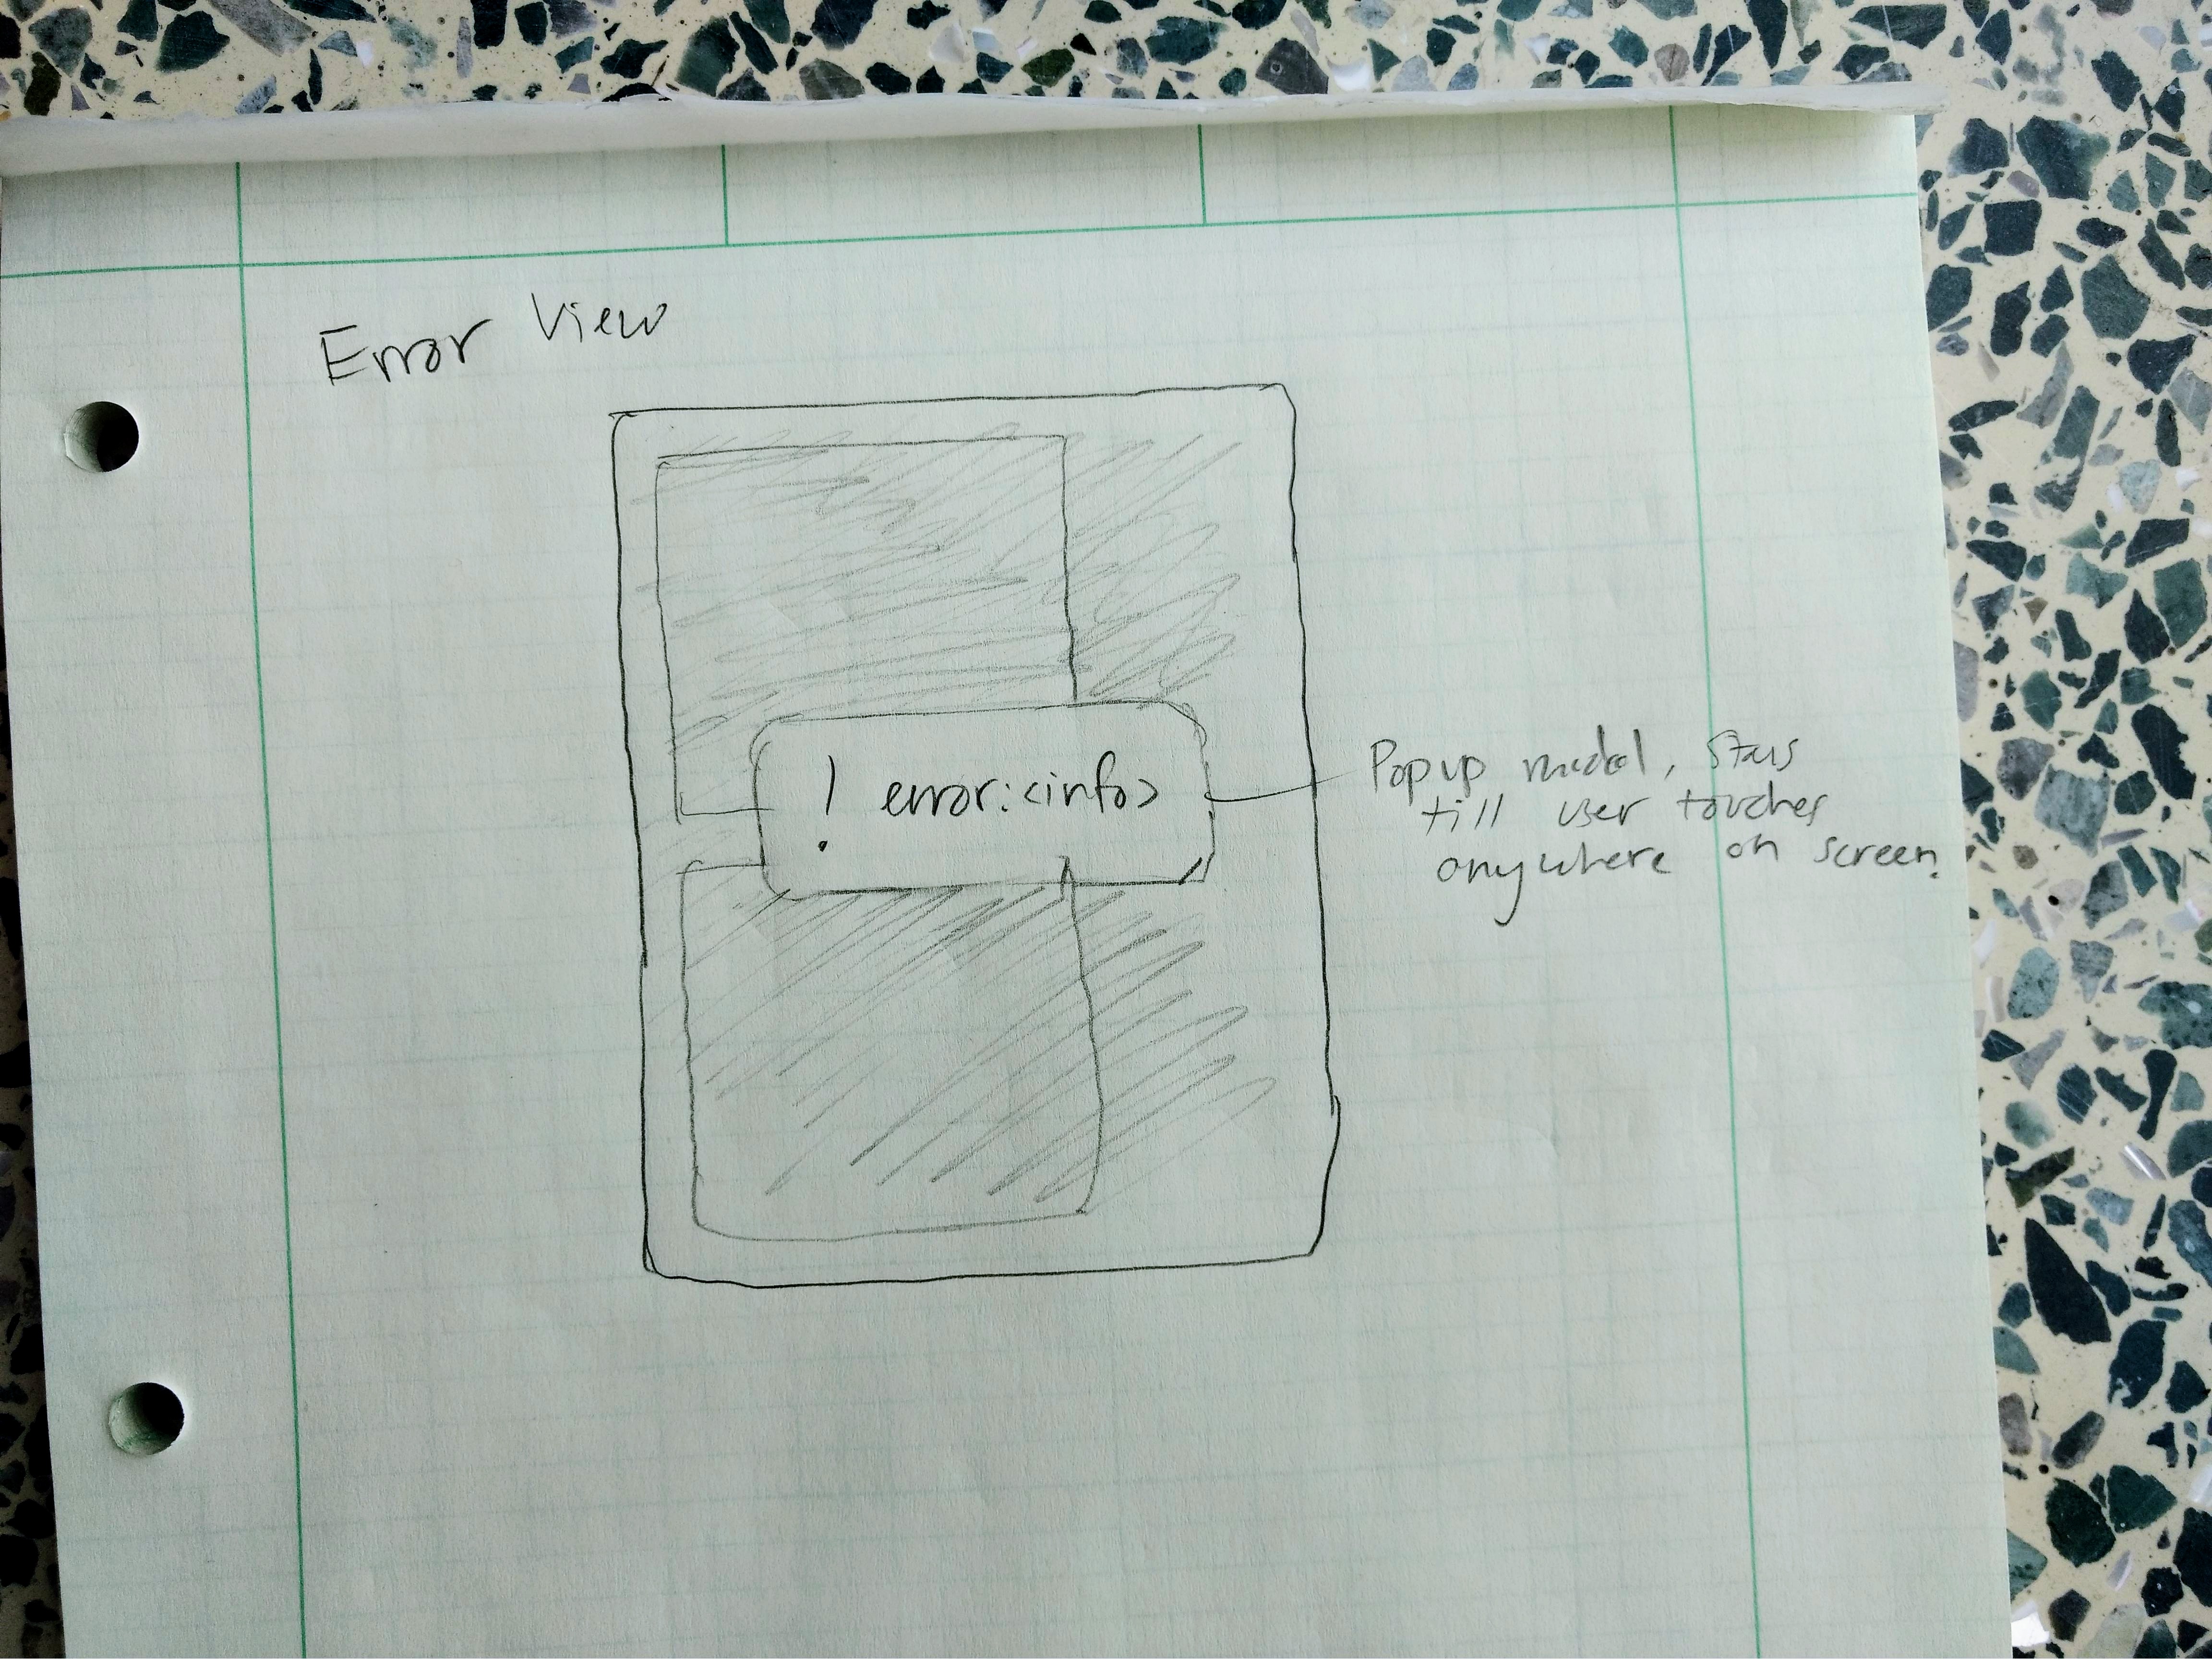 Error View
! error:<info>
Popup modal, stays
till user touches
anywhere on screen.